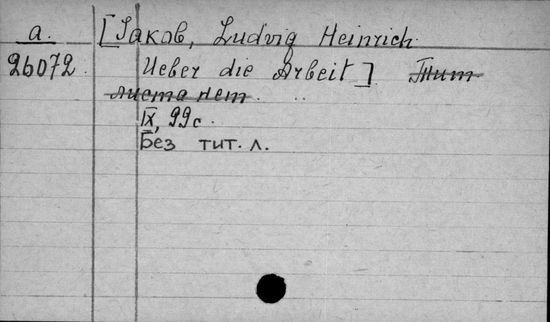 a. [Jakob, Ludvig Heinrich.
26072. Ueber die Arbeit] Тит
листа нет.
IX, 99 с.
Без тит. л.